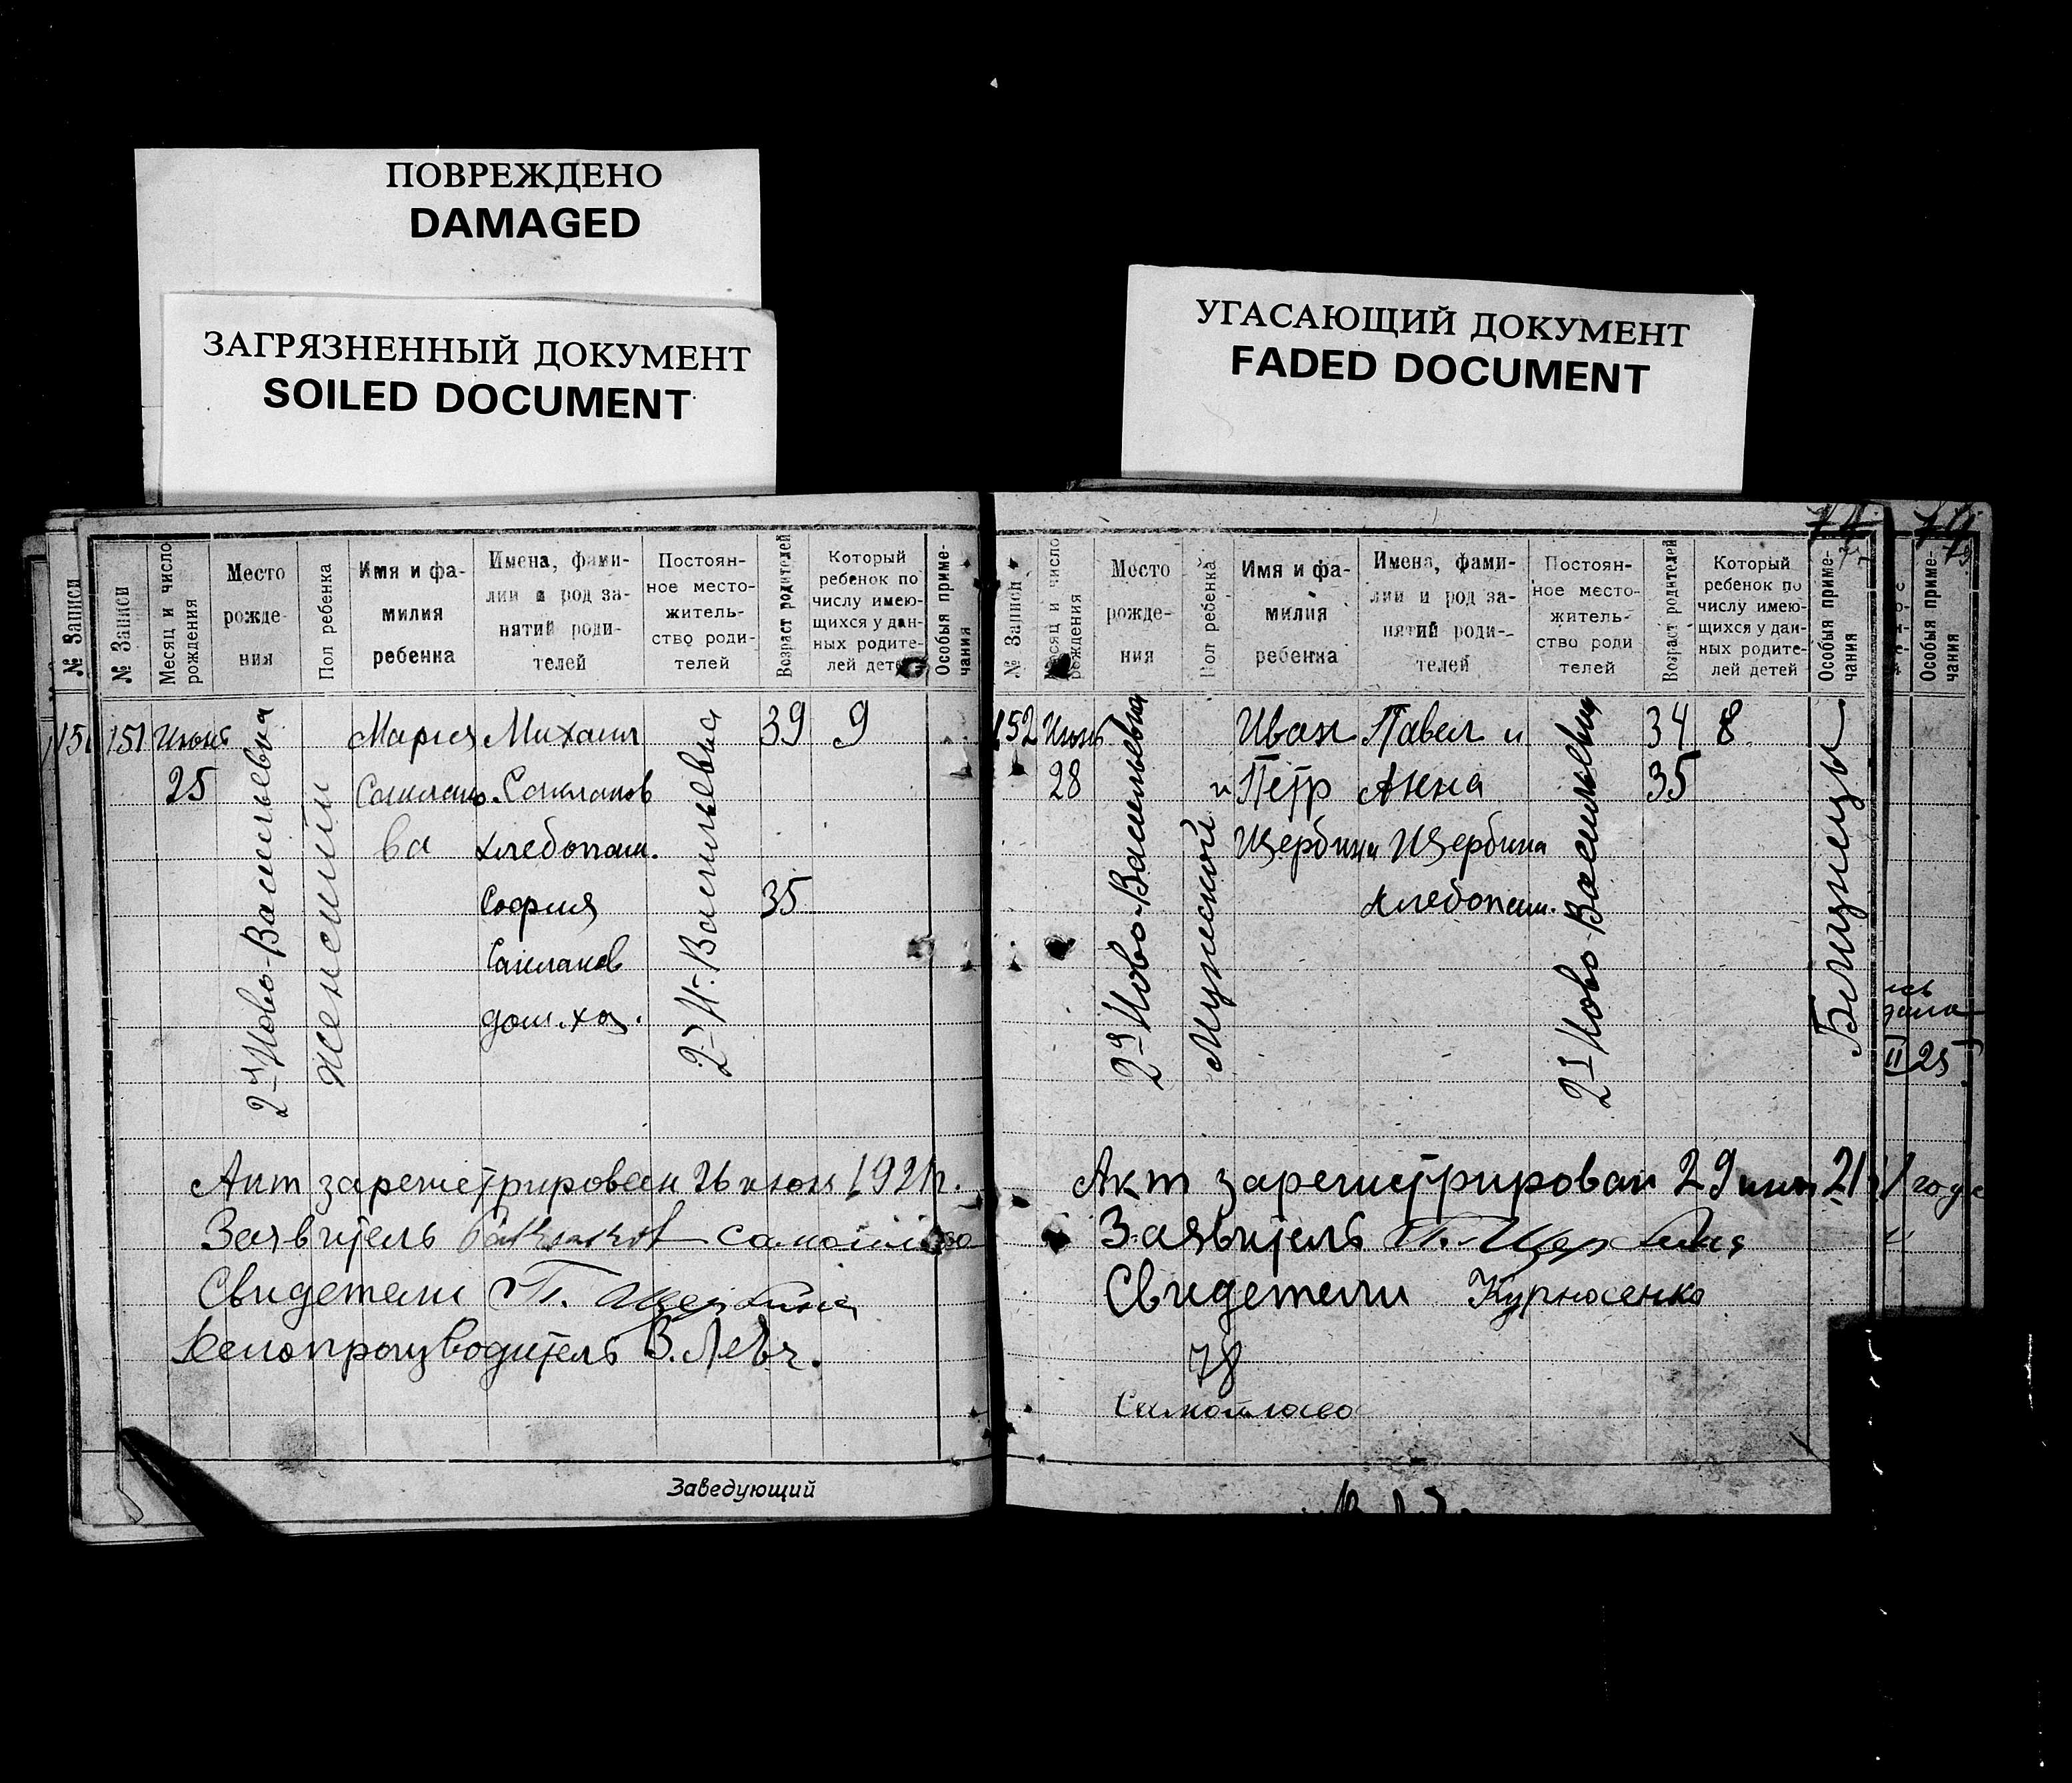 ПОВРЕЖДЕНО
DAMAGED
ЗАГРЯЗНЕННЫЙ ДОКУМЕНТ
SOILED DOCUMENT
УГАСАЮЩИЙ ДОКУМЕНТ
FADED DOCUMENT
№ Записи
№ Записи
Месяц и число рождения
Место рожде-
ния
Пол ребенка
Имя и фа-
милия
ребенка
Имена, фами-
лии и род за-
нятий роди-
телей
Постоян-
ное место-
житель-
ство роди-
телей
Возраст родителей
Который
ребенок по
числу имею-
щихся у дан-
ных родите-
лей детей
Особыя приме-
чания
151 Июнь
25
2я Ново-Васильевка
женский
Мария
ва
Михаил
хлебопаш.
София
дом. хоз.
2я Н. Васильевка
39
35
9
Акт зарегистрирован 26 июня 1921 г.
Заявитель
Свидетели П. Щербина
Делопроизводитель
Заведующий
74
77
№ Записи
Месяц и число
рождения
Место
рожде-
ния
Пол ребенка
Имя и фа-
милия
ребенка
Имена, фами-
лии и род за-
нятий роди-
телей
Постоян-
ное место-
житель-
ство роди
телей
Возраст родителей
Который
ребенок по
числу имею-
щихся у дан-
ных родите-
лей детей
Особыя приме-
чания
152 Июнь
28
2я Ново-Васильевка
Мужеский
Иван
и Петр
Щербины
Павел и
Анна
Щербина
хлебопаш.
2я Ново-Васильевка
34
35
8
Близнецы
Акт зарегистрирован 29 июня 21
Заявитель П. Щербина
Свидетели Курносенко
78
Особыя приме-
чания
25